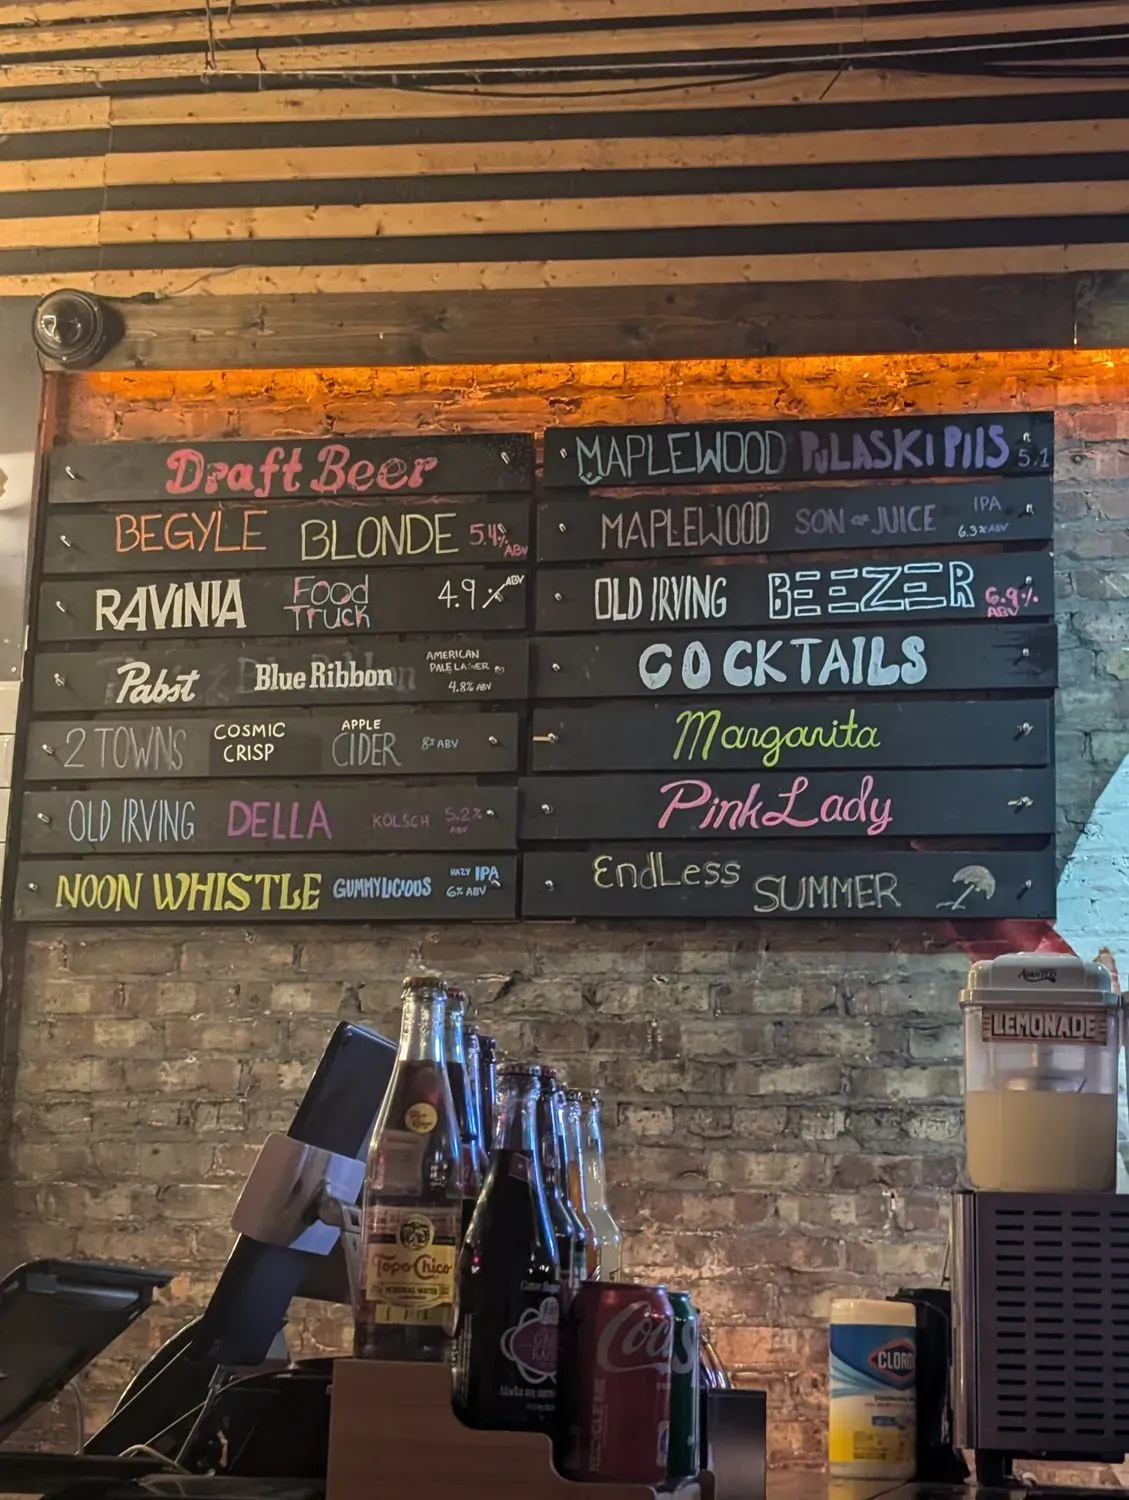 Draft Beer
BEGYLE BLONDE 5.4% ABV
RAVINIA Food Truck 4.9% ABV
Pabst Blue Ribbon AMERICAN PALE LAGER 4.8% ABV
2 TOWNS COSMIC CRISP APPLE CIDER 8% ABV
OLD IRVING DELLA KOLSCH 5.2% ABV
NOON WHISTLE GUMMYLICIOUS HAZY IPA 6% ABV
MAPLEWOOD PULASKI PILS 5.1
MAPLEWOOD SON OF JUICE IPA 6.3% ABV
OLD IRVING BEEZER 6.9% ABV
COCKTAILS
Margarita
Pink Lady
EndLess SUMMER
AVANTCO
LEMONADE
Topo Chico
MINERAL WATER
Coca
CLORO